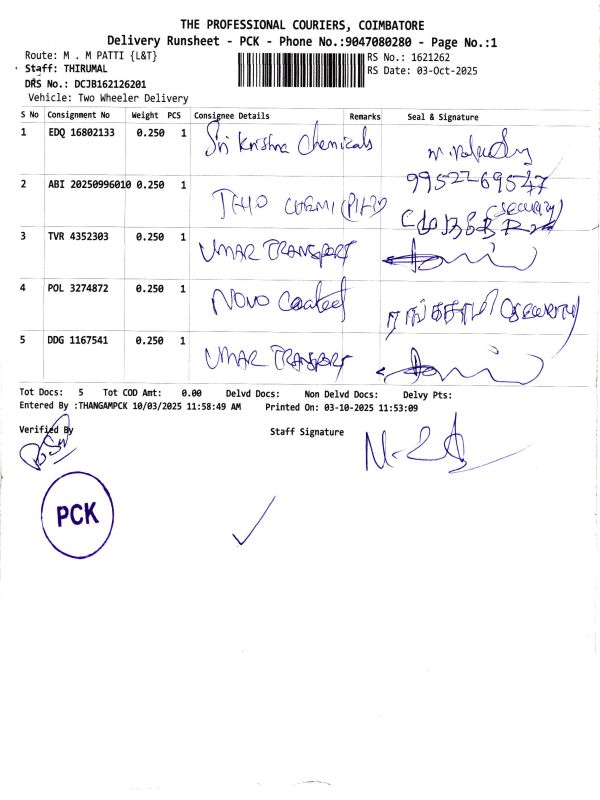 THE PROFESSIONAL COURIERS, COIMBATORE
Delivery Runsheet - PCK - Phone No.:9047080280 - Page No.:1
Route: M . M PATTI {L&T} RS No.: 1621262
Staff: THIRUMAL RS Date: 03-Oct-2025
DRS No.: DCJB162126201
Vehicle: Two Wheeler Delivery
S No Consignment No Weight PCS Consignee Details Remarks Seal & Signature
1 EDQ 16802133 0.250 1 Sri Krishna Chemicals
9952269547
2 ABI 20250996010 0.250 1 CHEMI (security)
3 TVR 4352303 0.250 1 UMAR TRANSPORT
4 POL 3274872 0.250 1 NOVO Coated
5 DDG 1167541 0.250 1 UMAR TRANSPORT
Tot Docs: 5 Tot COD Amt: 0.00 Delvd Docs: Non Delvd Docs: Delvy Pts:
Entered By :THANGAMPCK 10/03/2025 11:58:49 AM Printed On: 03-10-2025 11:53:09
Verified By Staff Signature
PCK